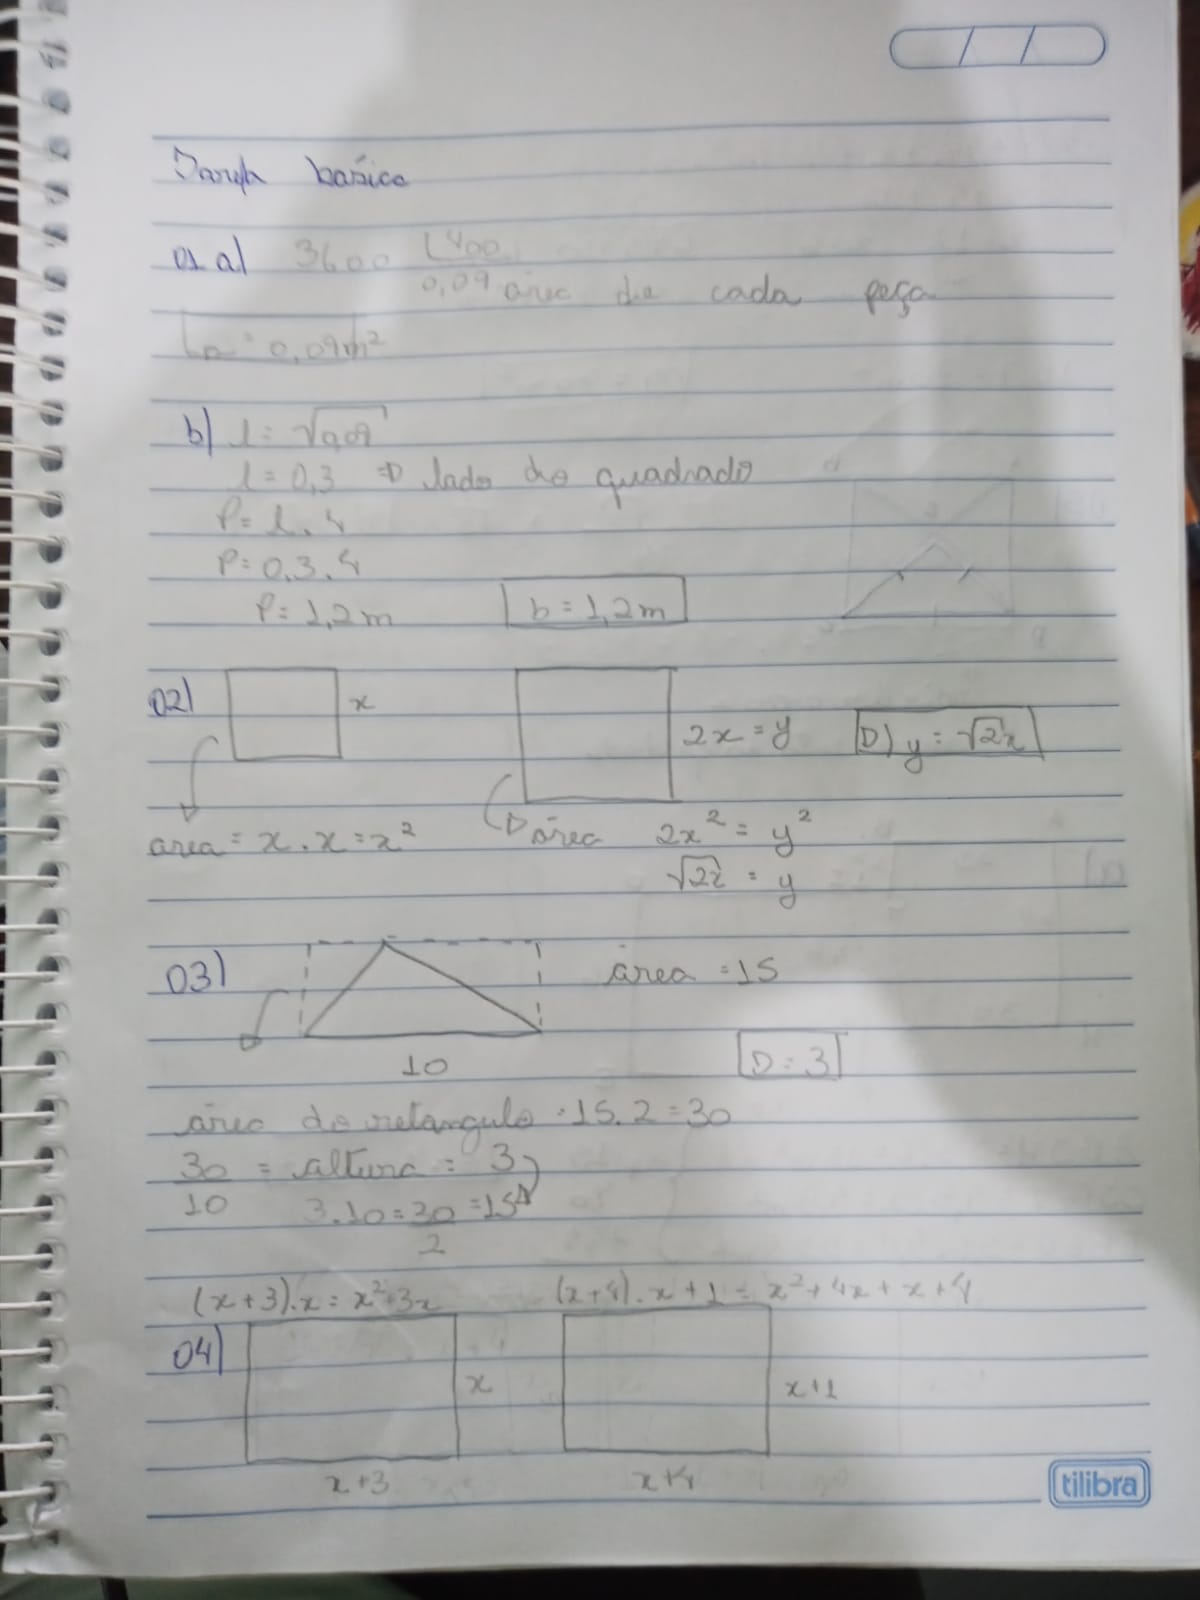 Tarefa básica
01 a) 3600 400
0,09 área de cada peça
a = 0,09m²
b) l = √0,09
l = 0,3 ⇒ lado do quadrado
P = l . 4
P = 0,3 . 4
P = 1,2 m b = 1,2m
02) x 2x = y D) y = √2x
area = x . x = x² área 2x² = y²
√2x = y
03) área = 15
10 D = 3
área do retangulo = 15 . 2 = 30
30 = altura = 3
10 3.10 = 30 = 15
2
(x+3).x = x²+3x (x+4).x+1 = x²+4x+x+4
04) x x+1
x+3 x+4
tilibra